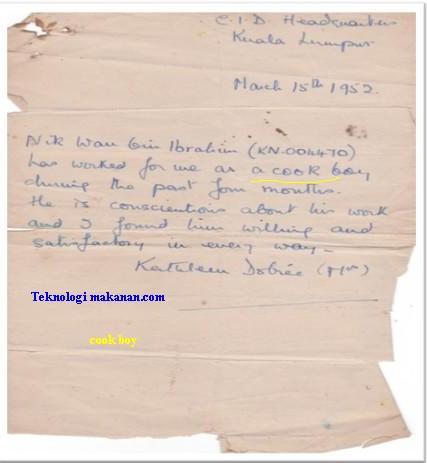 C.I.D. Headquarters
Kuala Lumpur
March 15th 1952.
Nik Wan bin Ibrahim (KN.004470)
has worked for me as a cook boy
during the past four months.
He is conscientious about his work
and I found him willing and
satisfactory in every way -
Kathleen Dobrée (Mrs)
Teknologi makanan.com
cook boy